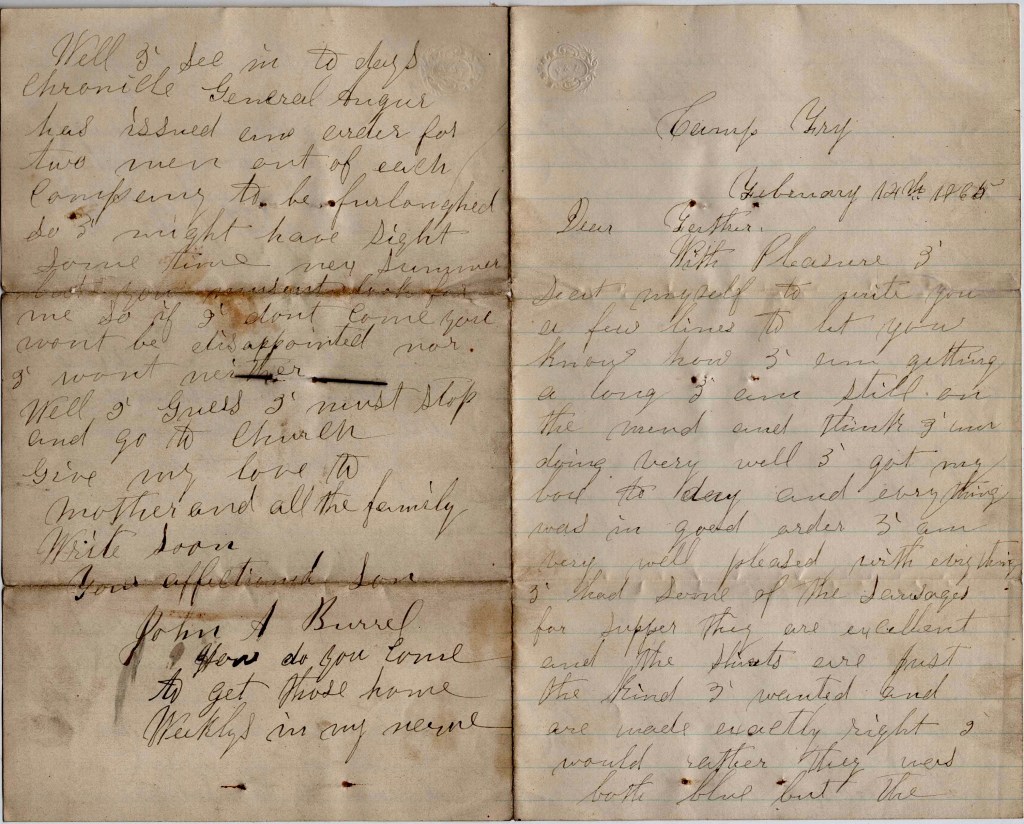 Camp Fry
February 12th 1865
Dear Father.
With Pleasure I
seat myself to write you
a few lines to let you
know how I am getting
a long I am still on
the mend and think I am
doing very well I got my
box to day and evry thing
was in good order I am
very well pleased with evry thing
I had some of the sausages
for supper they are excellent
and the shirts are just
the kind I wanted and
are made exactly right I
would rather they were
both blue but the
Well I see in to days
Chronicle General Augur
has issued an order for
two men out of each
Company to be furloughed
so I might have sight
some time nex summer
but you musent look for
me so if I dont come you
wont be disappointed nor
I wont neither
Well I Guess I must stop
and go to Church
Give my love to
Mother and all the family
Write soon
Your affectionate son
John A Burrel
How do you come
to get those home
Weeklys in my name